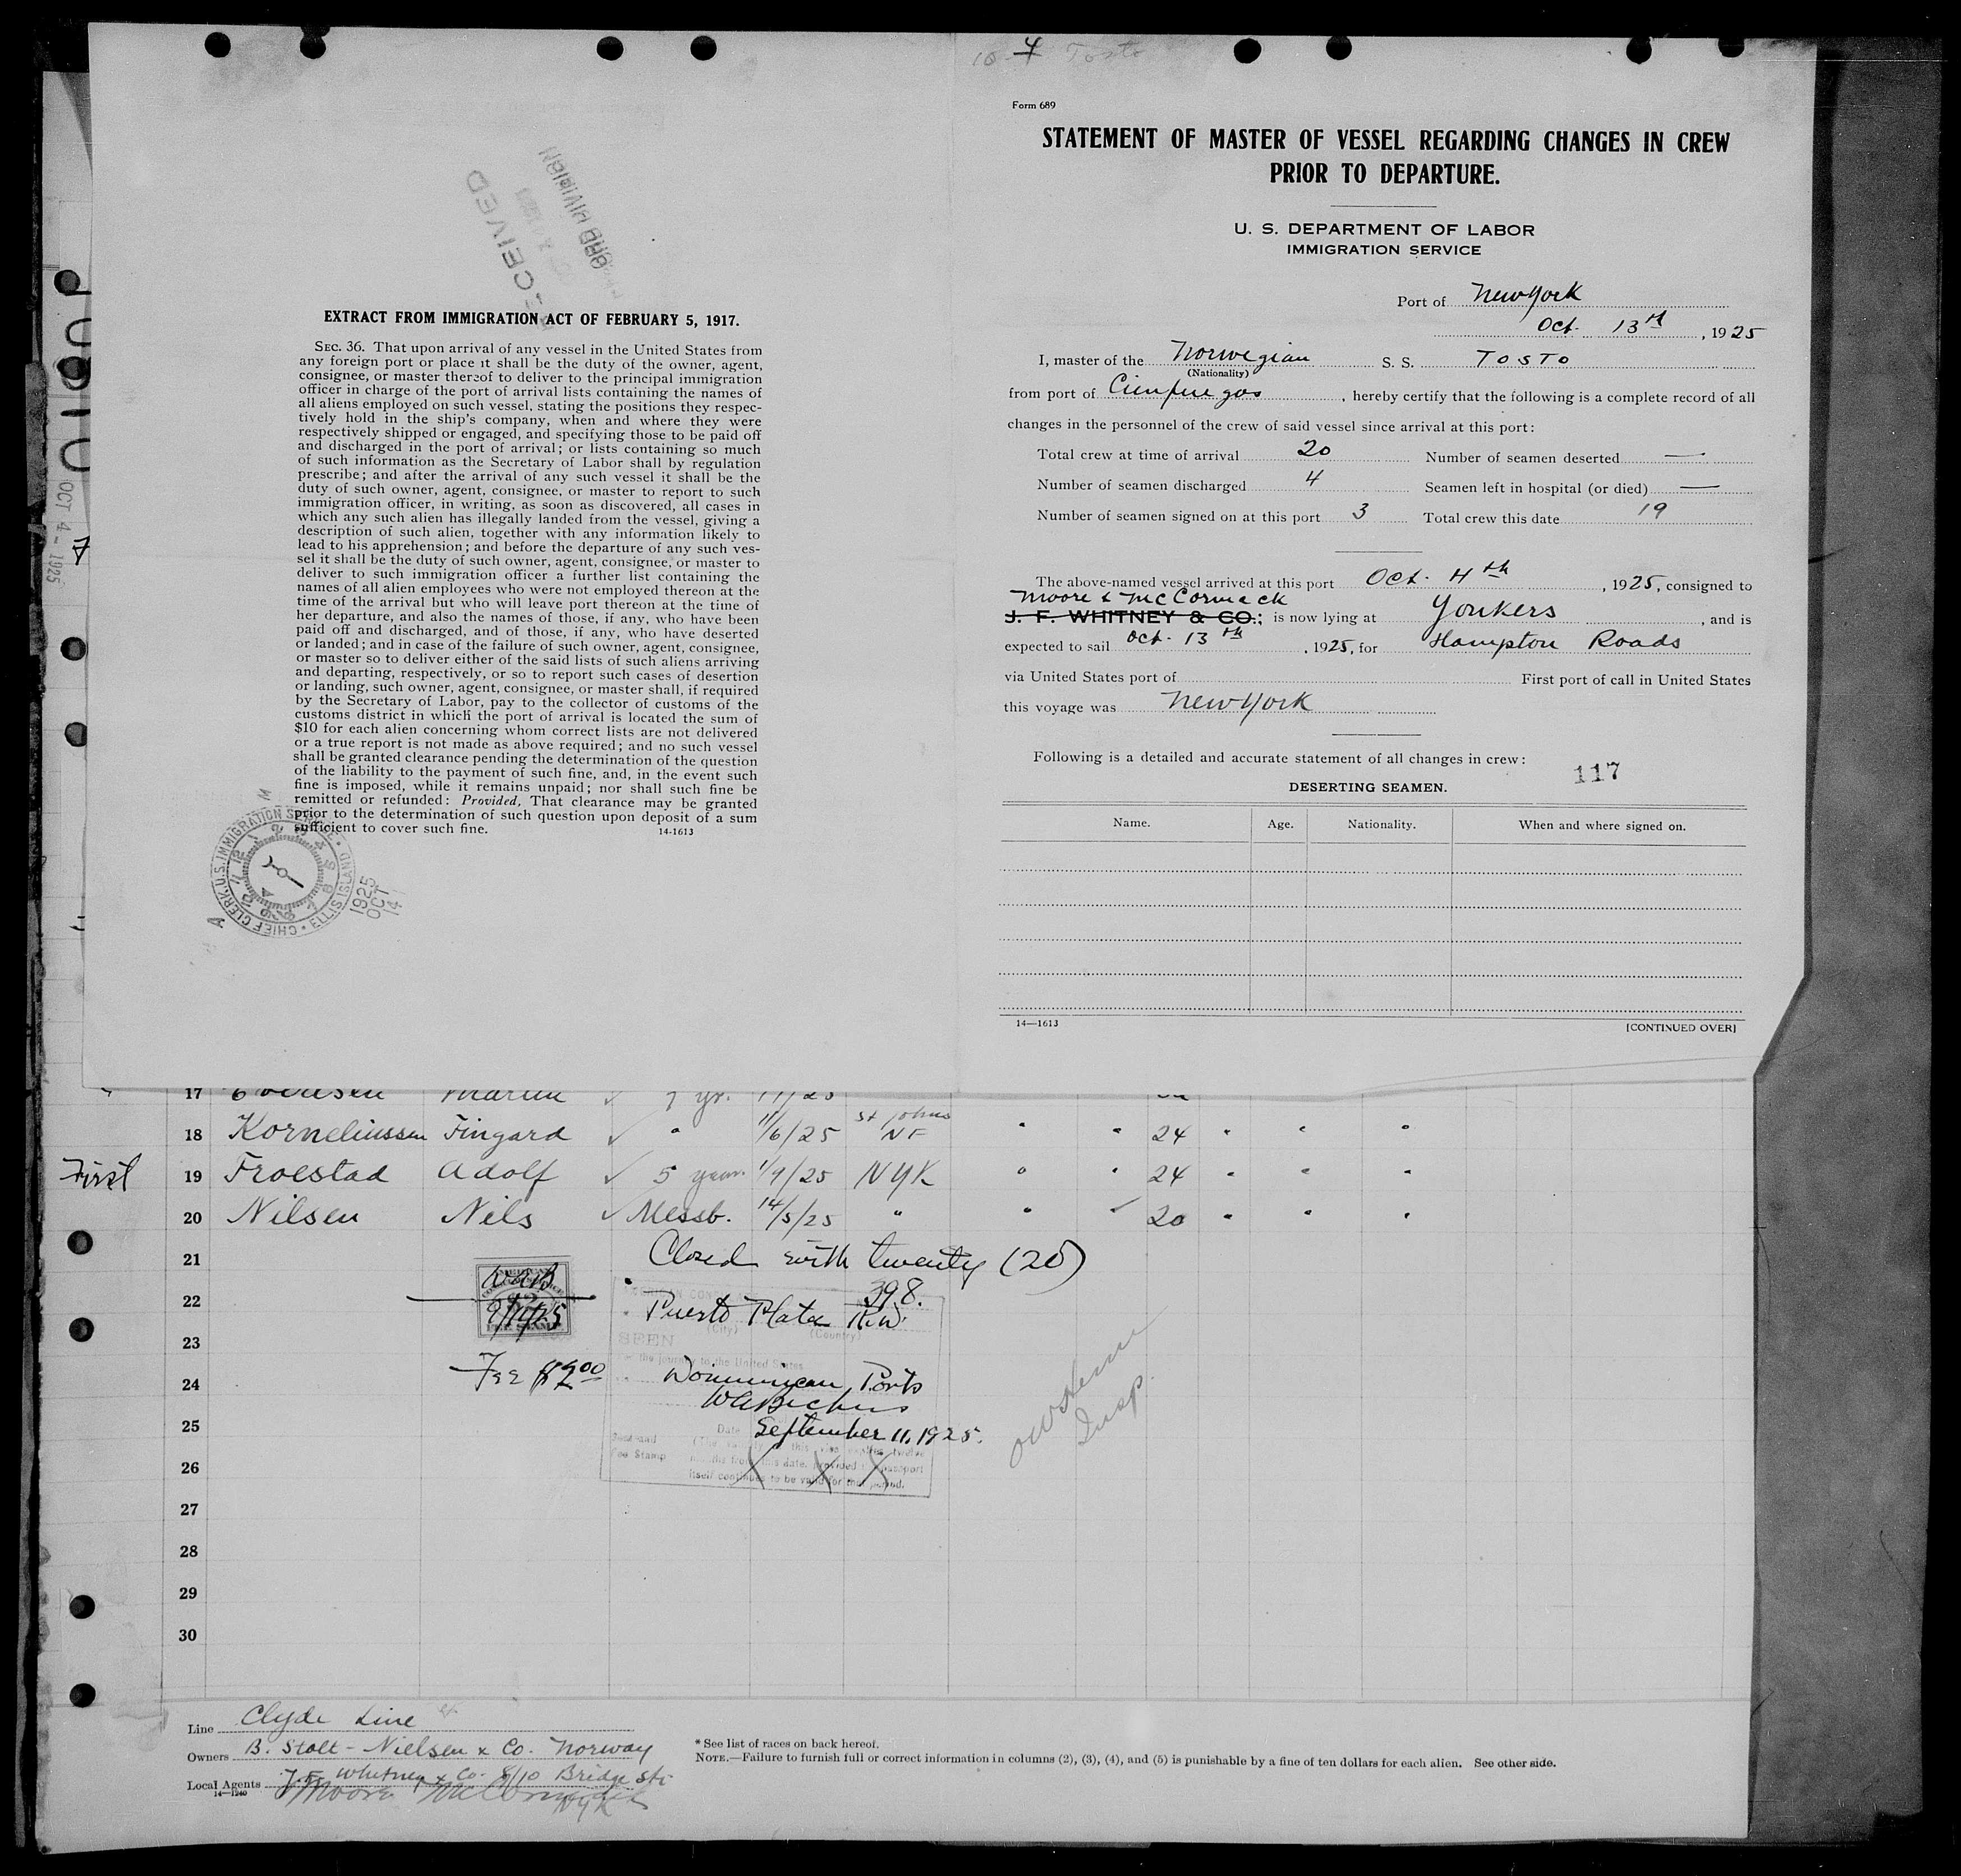 10-4 Tosto
RECEIVED
RECORD DIVISION
EXTRACT FROM IMMIGRATION ACT OF FEBRUARY 5, 1917.
SEC. 36. That upon arrival of any vessel in the United States from
any foreign port or place it shall be the duty of the owner, agent,
consignee, or master thereof to deliver to the principal immigration
officer in charge of the port of arrival lists containing the names of
all aliens employed on such vessel, stating the positions they respec-
tively hold in the ship's company, when and where they were
respectively shipped or engaged, and specifying those to be paid off
and discharged in the port of arrival; or lists containing so much
of such information as the Secretary of Labor shall by regulation
prescribe; and after the arrival of any such vessel it shall be the
duty of such owner, agent, consignee, or master to report to such
immigration officer, in writing, as soon as discovered, all cases in
which any such alien has illegally landed from the vessel, giving a
description of such alien, together with any information likely to
lead to his apprehension; and before the departure of any such ves-
sel it shall be the duty of such owner, agent, consignee, or master to
deliver to such immigration officer a further list containing the
names of all alien employees who were not employed thereon at the
time of the arrival but who will leave port thereon at the time of
her departure, and also the names of those, if any, who have been
paid off and discharged, and of those, if any, who have deserted
or landed; and in case of the failure of such owner, agent, consignee,
or master so to deliver either of the said lists of such aliens arriving
and departing, respectively, or so to report such cases of desertion
or landing, such owner, agent, consignee, or master shall, if required
by the Secretary of Labor, pay to the collector of customs of the
customs district in which the port of arrival is located the sum of
$10 for each alien concerning whom correct lists are not delivered
or a true report is not made as above required; and no such vessel
shall be granted clearance pending the determination of the question
of the liability to the payment of such fine, and, in the event such
fine is imposed, while it remains unpaid; nor shall such fine be
remitted or refunded: Provided, That clearance may be granted
prior to the determination of such question upon deposit of a sum
sufficient to cover such fine. 14-1613
CHIEF CLERK, U.S. IMMIGRATION SERVICE • ELLIS ISLAND •
1925
OCT
14
OCT 4 - 1925
7
Form 689
STATEMENT OF MASTER OF VESSEL REGARDING CHANGES IN CREW
PRIOR TO DEPARTURE.
U. S. DEPARTMENT OF LABOR
IMMIGRATION SERVICE
Port of New York
Oct. 13th, 1925
I, master of the Norwegian S. S. TOSTO
(Nationality)
from port of Cienfuegos, hereby certify that the following is a complete record of all
changes in the personnel of the crew of said vessel since arrival at this port:
Total crew at time of arrival 20 Number of seamen deserted —
Number of seamen discharged 4 Seamen left in hospital (or died) —
Number of seamen signed on at this port 3 Total crew this date 19
The above-named vessel arrived at this port Oct. 4th, 1925, consigned to
Moore & McCormack
J. F. WHITNEY & CO.; is now lying at Yonkers, and is
expected to sail Oct. 13th, 1925, for Hampton Roads
via United States port of First port of call in United States
this voyage was New York
Following is a detailed and accurate statement of all changes in crew:
117
DESERTING SEAMEN.
Name. Age. Nationality. When and where signed on.
14—1613 [CONTINUED OVER]
17 Martin ✓ 7 yr.
18 Korneliussen Fingard ✓ " 11/6/25 St Johns NF " " 24 " " "
First 19 Froestad Adolf ✓ 5 years 1/9/25 NYK " " 24 " " "
20 Nilsen Nils ✓ Messb. 14/5/25 " " ✓ 20 " " "
21 Closed with twenty (20)
398.
22 Puerto Plata R.D.
(City) (Country)
9/11/25
FEE STAMP
23 SEEN
For the journey to the United States
24 Fee $2.00 Dominican Ports
25 Date September 11, 1925.
Seal and
Fee Stamp
(The validity of this visa expires twelve
26 months from this date, provided the passport
itself continues to be valid for that period.
Insp.
27
28
29
30
Line Clyde Line
Owners B. Stolt-Nielsen & Co. Norway
Local Agents J. F. Whitney & Co. 8/10 Bridge St.
Moore McCormack NYK
14—1240
* See list of races on back hereof.
NOTE.—Failure to furnish full or correct information in columns (2), (3), (4), and (5) is punishable by a fine of ten dollars for each alien. See other side.